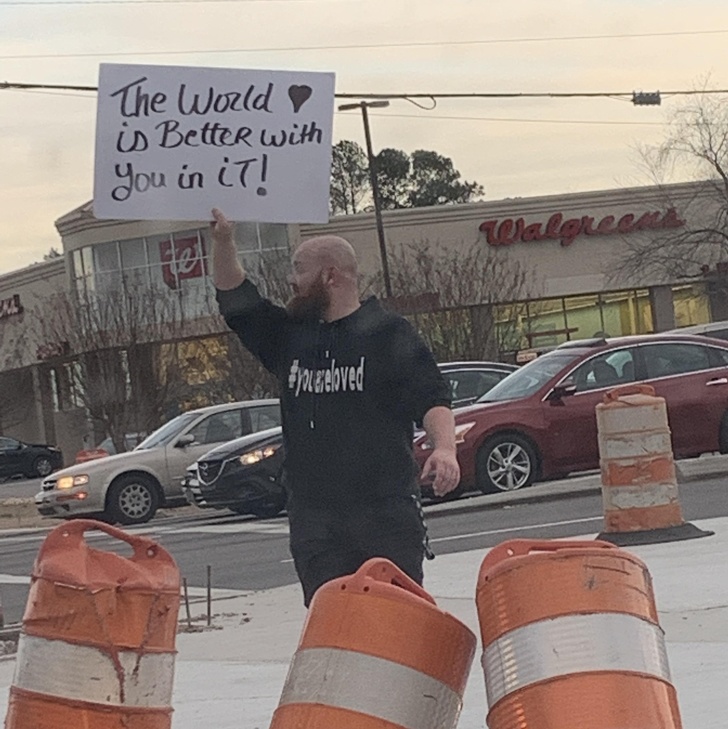 The World ♥
is Better with
you in iT!
Walgreens
#youareloved